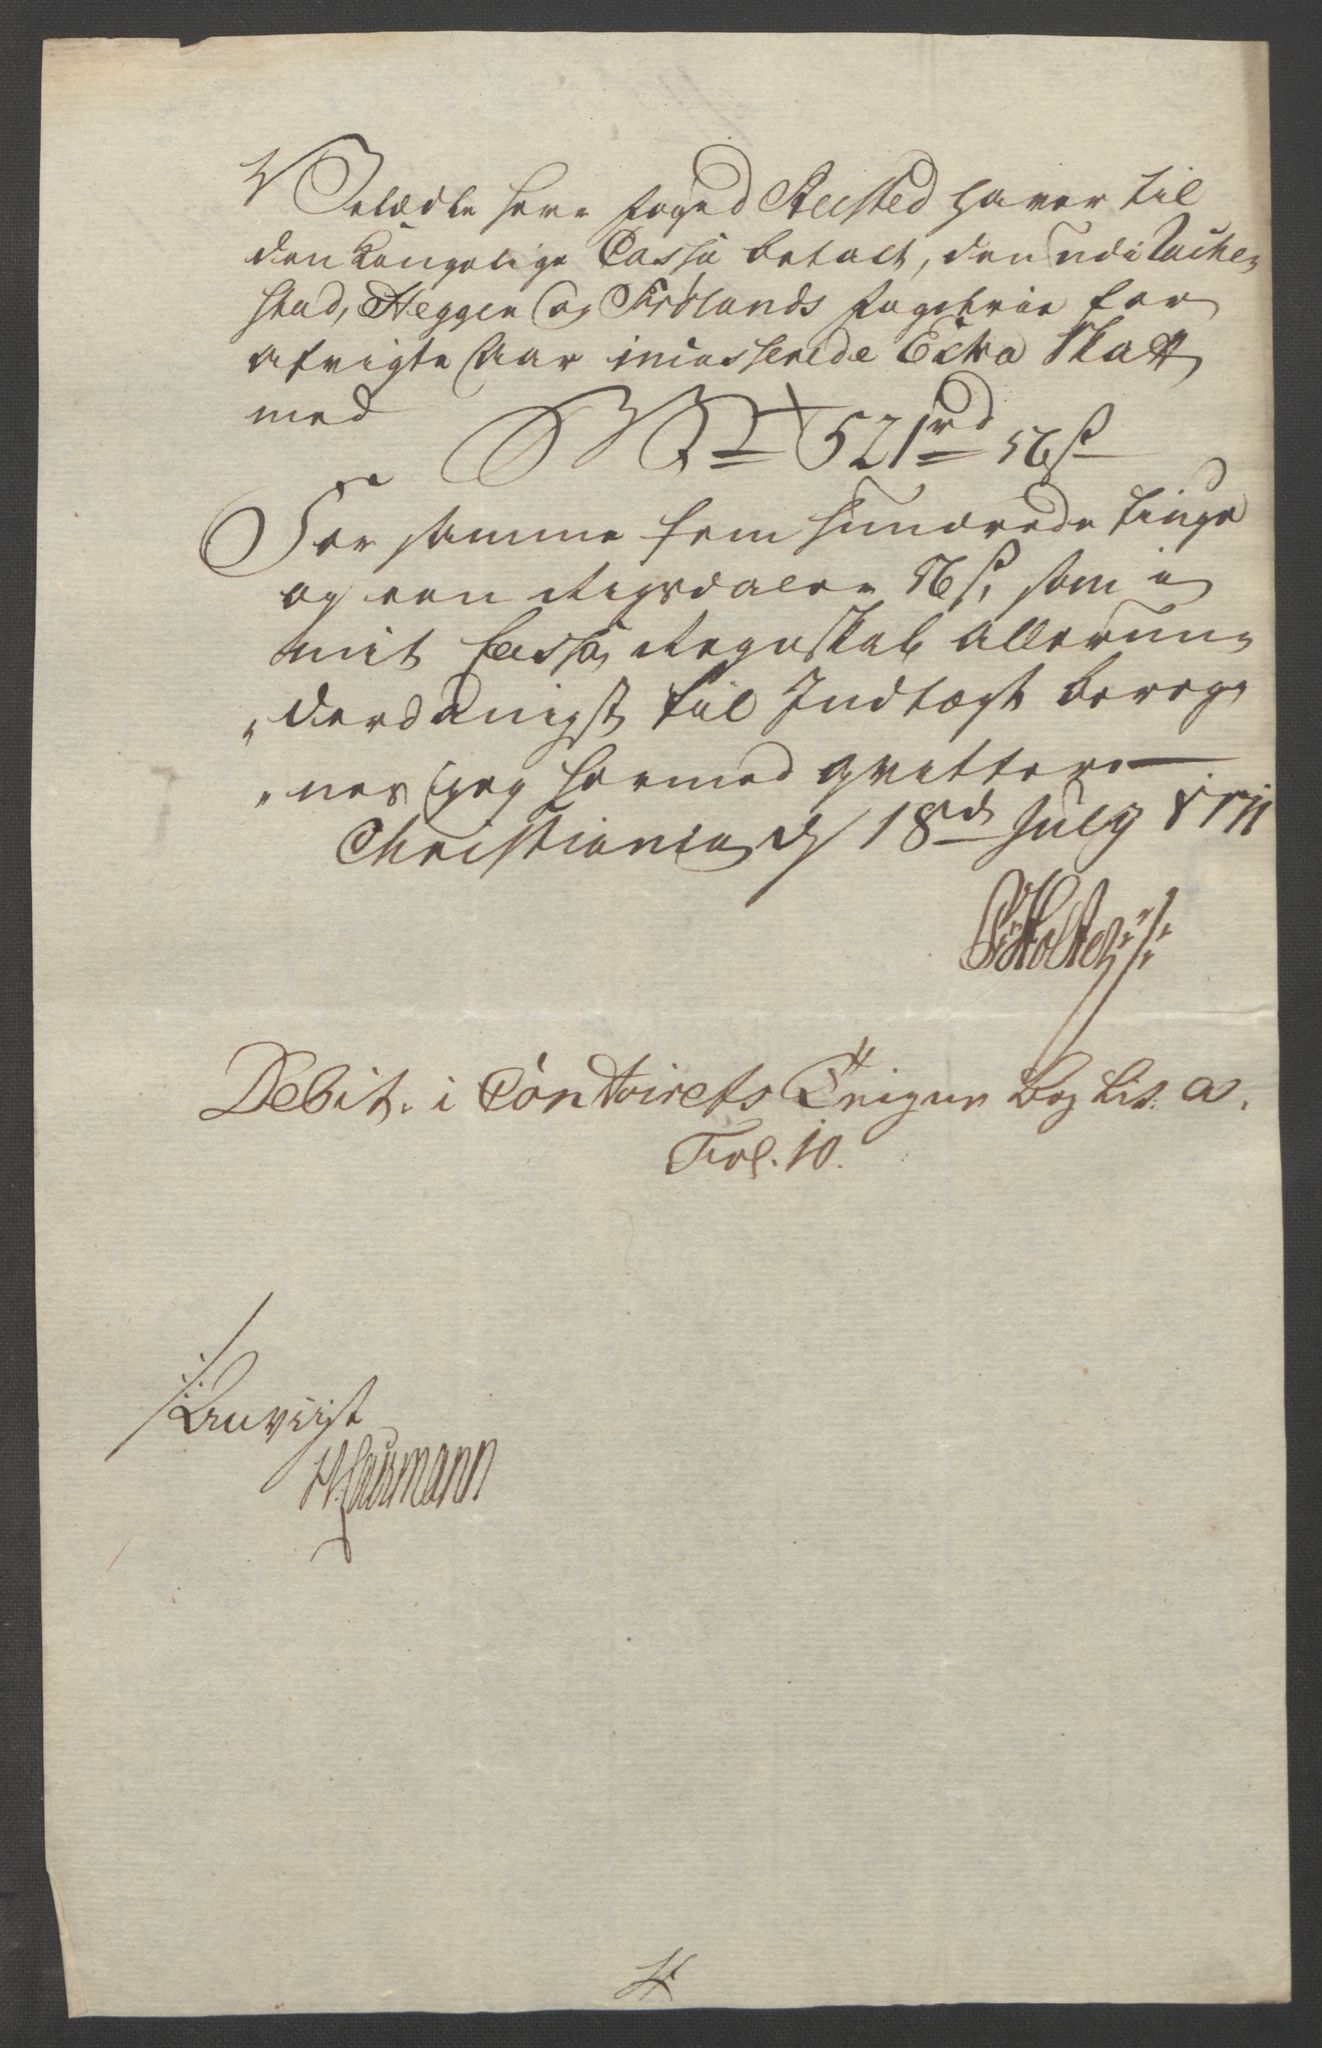 Velædle Herr Foged Stecksted haver til
den Kongelige Cassa betalt, den udi Racke-
stad, Heggen og Frølands Fogderie for
afvigte Aar incasserede Extra Skatt
med
521 rd 56 s
For samme fem Hundrede tiuge
og een Rigsdaler 56 s, som i
mit Cassa Regnskab allerun-
derdanigst til Indtægt bereg-
nes jeg hermed qvitterer
Christiania d 18d July 1771
P: Holter
Debit. i Contoirets Qvignn Bog Lit. a.
Fol. 10.
Anviist
H. Hausmann
4